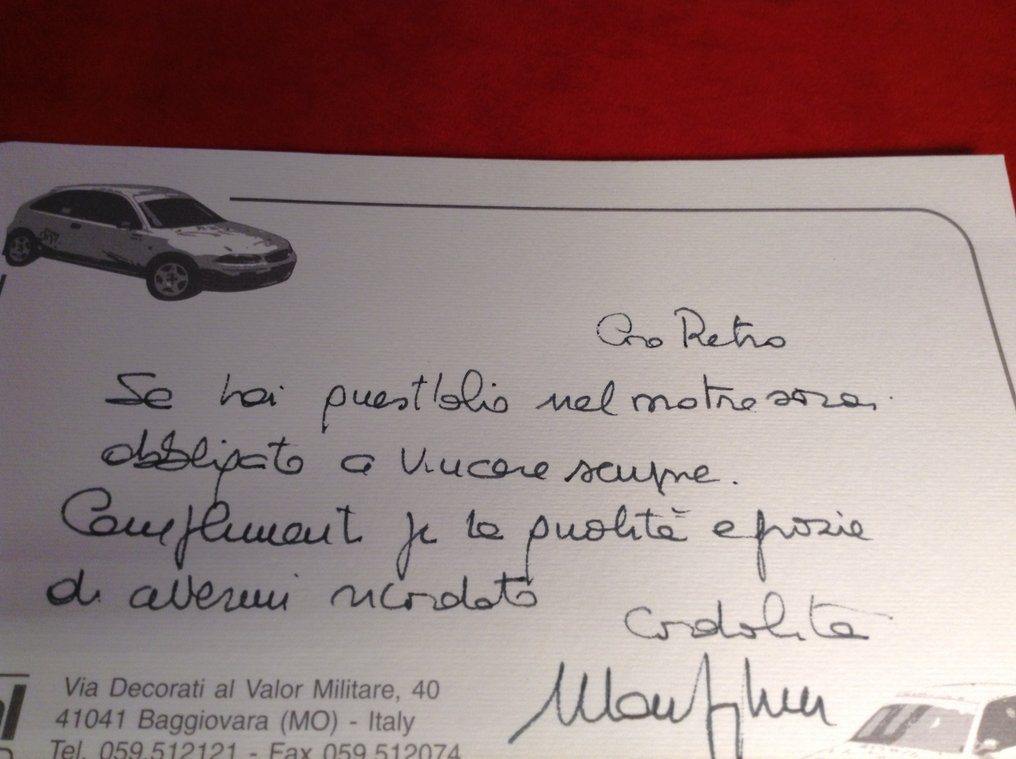 Caro Pietro
Se hai quest'olio nel motore sarai
obbligato a vincere sempre.
Complimenti per la qualità e grazie
di avermi ricordato
Cordialità
Via Decorati al Valor Militare, 40
41041 Baggiovara (MO) - Italy
Tel. 059.512121 - Fax 059.512074